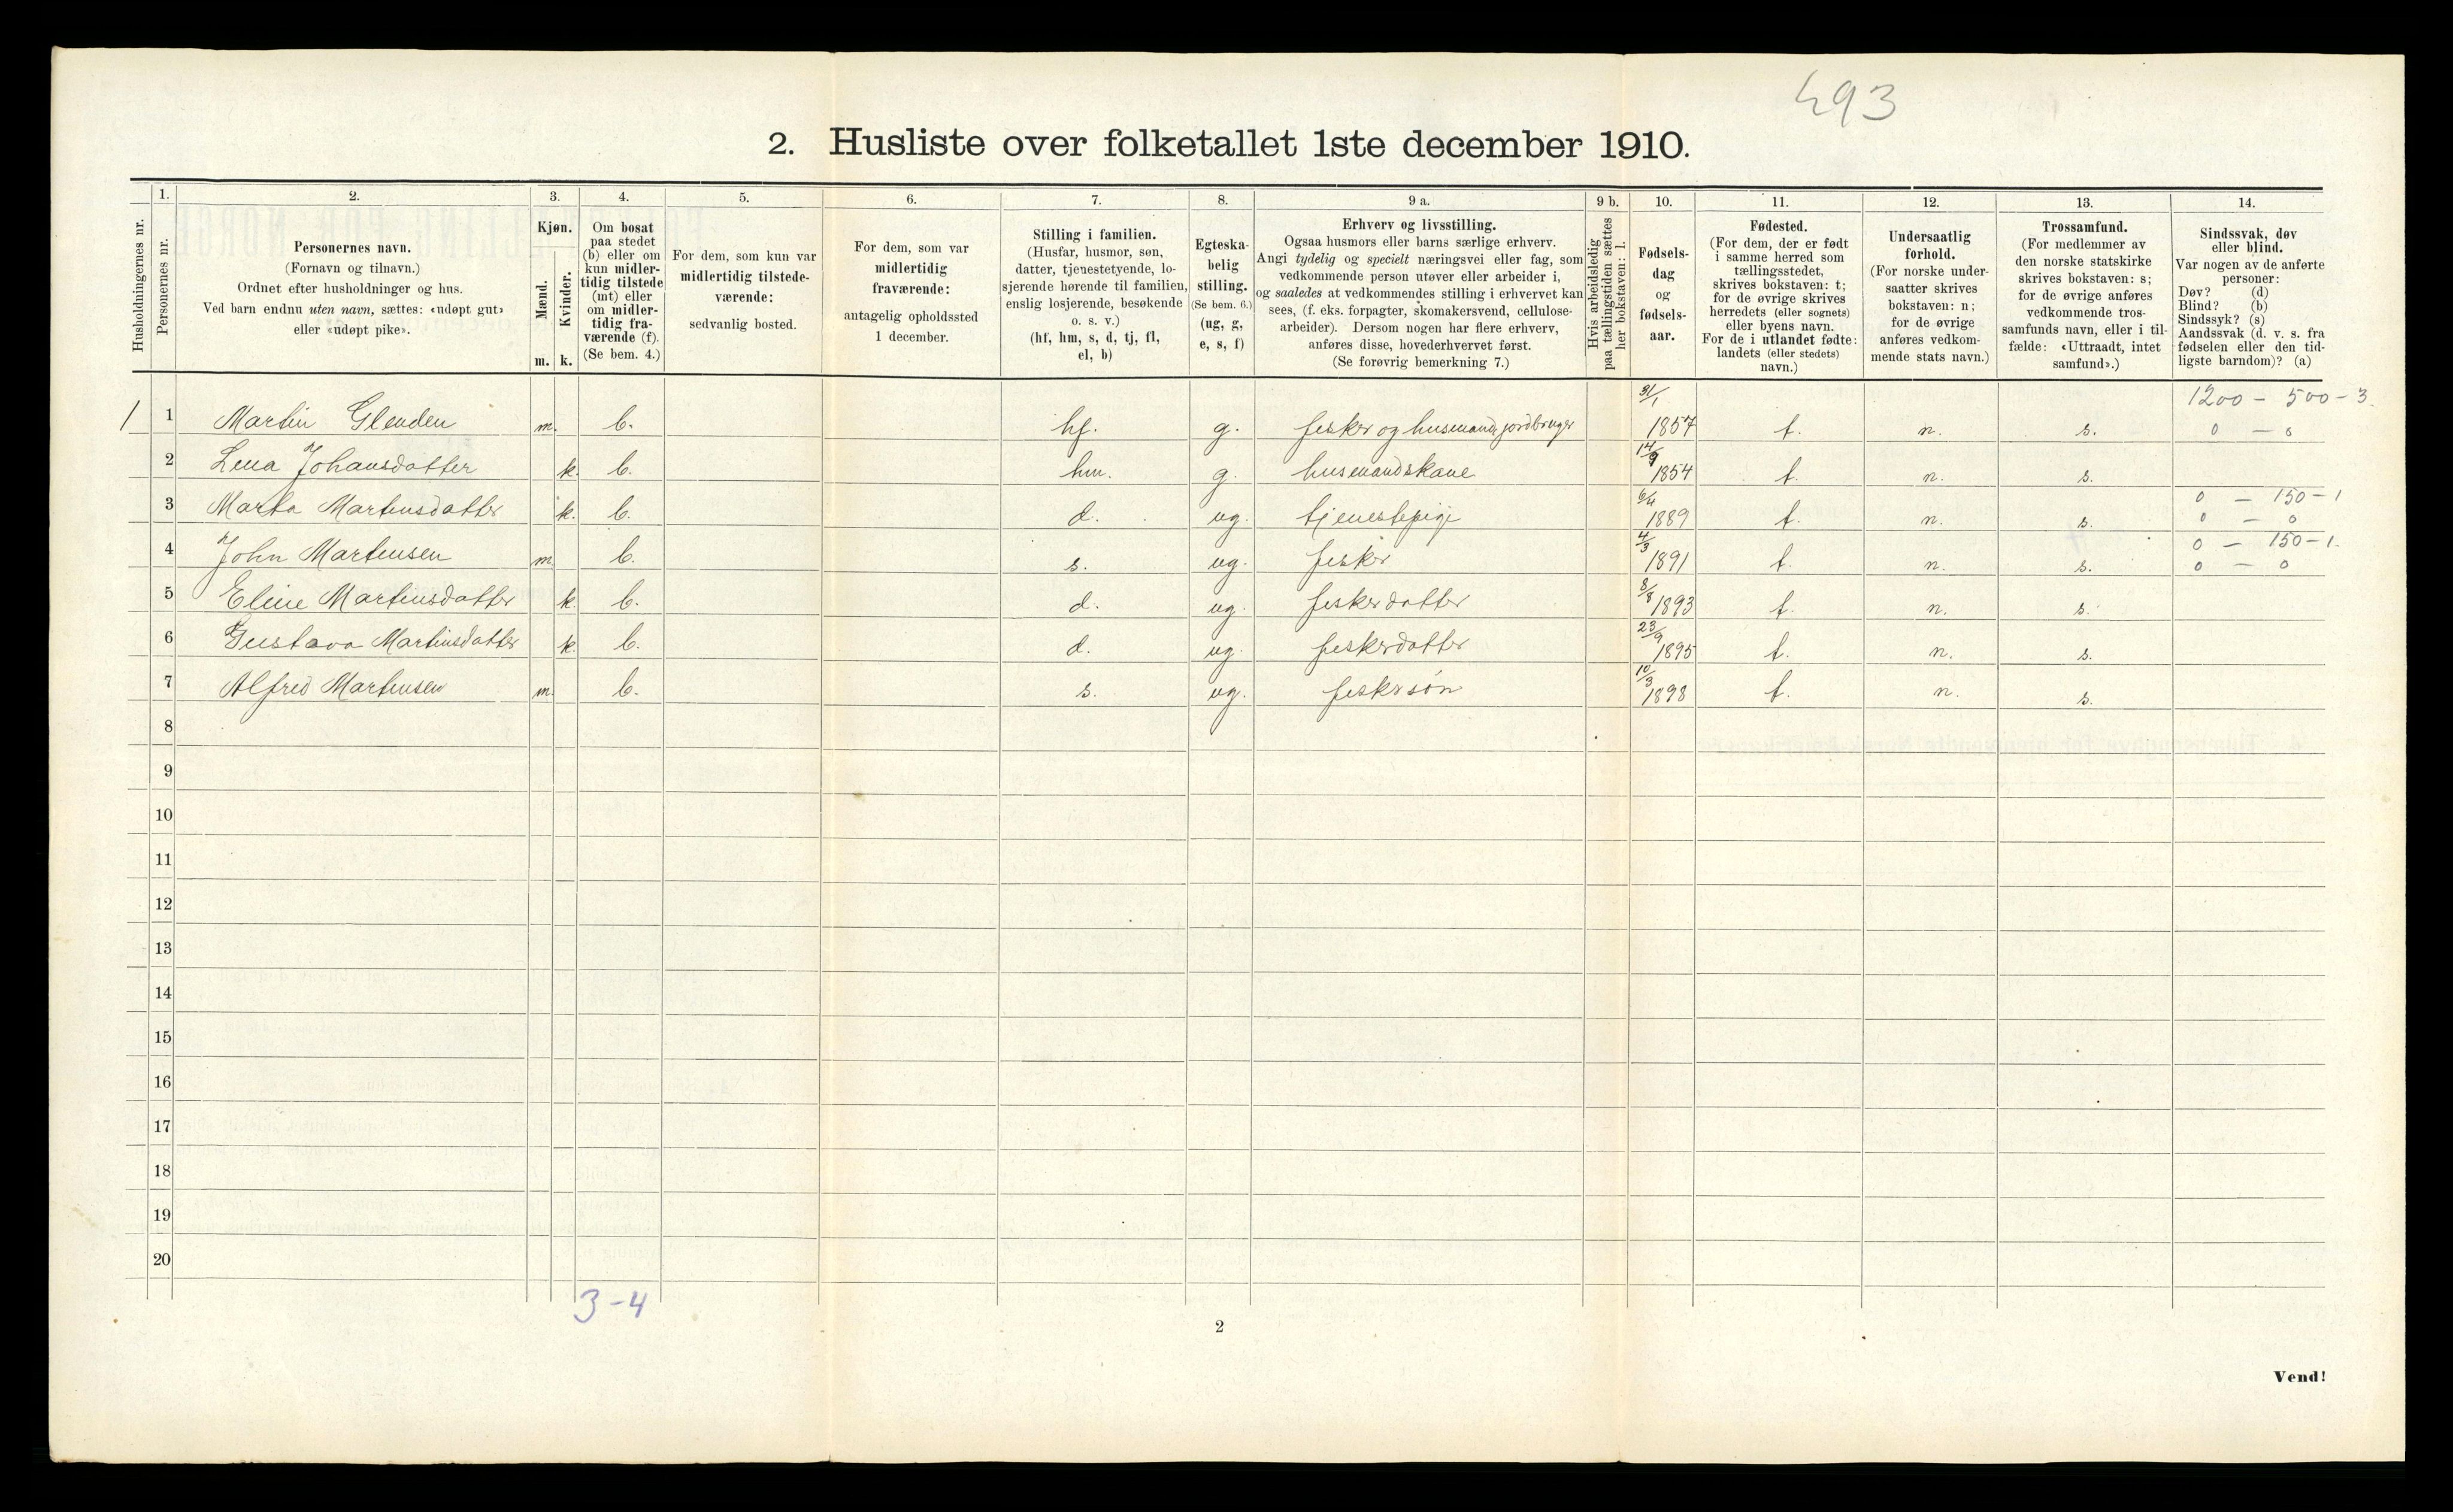 493
2. Husliste over folketallet 1ste december 1910.
Husholdningernes nr.
1.
Personernes nr.
2.
Personernes navn.
(Fornavn og tilnavn.)
Ordnet efter husholdninger og hus.
Ved barn endnu uten navn, sættes: «udøpt gut»
eller «udøpt pike».
3.
Kjøn.
Mænd.
Kvinder.
m. k.
4.
Om bosat
paa stedet
(b) eller om
kun midler-
tidig tilstede
(mt) eller
om midler-
tidig fra-
værende (f).
(Se bem. 4.)
5.
For dem, som kun var
midlertidig tilstede-
værende:
sedvanlig bosted.
6.
For dem, som var
midlertidig
fraværende:
antagelig opholdssted
1 december.
7.
Stilling i familien.
(Husfar, husmor, søn,
datter, tjenestetyende, lo-
sjerende hørende til familien,
enslig losjerende, besøkende
o. s. v.)
(hf, hm, s, d, tj, fl,
el, b)
8.
Egteska-
belig
stilling.
(Se bem. 6.)
(ug, g,
e, s, f)
9 a.
Erhverv og livsstilling.
Ogsaa husmors eller barns særlige erhverv.
Angi tydelig og specielt næringsvei eller fag, som
vedkommende person utøver eller arbeider i,
og saaledes at vedkommendes stilling i erhvervet kan
sees, (f. eks. forpagter, skomakersvend, cellulose-
arbeider). Dersom nogen har flere erhverv,
anføres disse, hovederhvervet først.
(Se forøvrig bemerkning 7.)
9 b.
Hvis arbeidsledig
paa tællingstiden sættes
her bokstaven: l.
10.
Fødsels-
dag
og
fødsels-
aar.
11.
Fødested.
(For dem, der er født
i samme herred som
tællingsstedet,
skrives bokstaven: t;
for de øvrige skrives
herredets (eller sognets)
eller byens navn.
For de i utlandet fødte:
landets (eller stedets)
navn.)
12.
Undersaatlig
forhold.
(For norske under-
saatter skrives
bokstaven: n;
for de øvrige
anføres vedkom-
mende stats navn.)
13.
Trossamfund.
(For medlemmer av
den norske statskirke
skrives bokstaven: s;
for de øvrige anføres
vedkommende tros-
samfunds navn, eller i til-
fælde: «Uttraadt, intet
samfund».)
14.
Sindssvak, døv
eller blind.
Var nogen av de anførte
personer:
Døv? (d)
Blind? (b)
Sindssyk? (s)
Aandssvak (d. v. s. fra
fødselen eller den tid-
ligste barndom)? (a)
1200 - 500 - 3
1 1 Martin Glenden m. b. hf. g. fisker og husmand jordbruger 31/1 1857 t. n. s. 0 - 0
2 Lena Johansdatter k. b. hm. g. husmandskane 14/9 1854 t. n. s.
0 - 150 - 1
3 Marta Martinsdatter k. b. d. ug. tjenestepige 6/4 1889 t. n. s. 0 - 0
0 - 150 - 1.
4 John Martinsen m. b. s. ug. fisker 4/3 1891 t. n. s. 0 - 0
5 Eline Martinsdatter k. b. d. ug. fiskerdatter 8/8 1893 t. n. s.
6 Gustava Martinsdatter k. b. d. ug. fiskerdatter 23/9 1895 t. n. s.
7 Alfred Martinsen m. b. s. ug. fiskersøn 10/3 1898 t. n. s.
8
9
10
11
12
13
14
15
16
17
18
19
20
3-4
2
Vend!